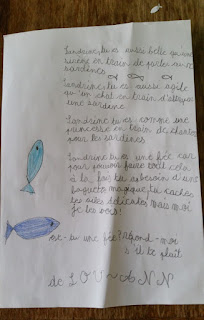 Sandrine, tu es aussi belle qu'une
sirène en train de parler aux
sardines
Sandrine, tu es aussi agile
qu'un chat en train d'attraper
une sardine
Sandrine tu es comme une
princesse en train de chanter
pour les sardines
Sandrine tu es une fée car
pour pouvoir faire tout cela
à la fois tu as besoin d'une
baguette magique, tu caches
tes ailes délicates mais moi
je les vois!
es-tu une fée? Répond-moi
s'il te plaît
de LOU-ANN